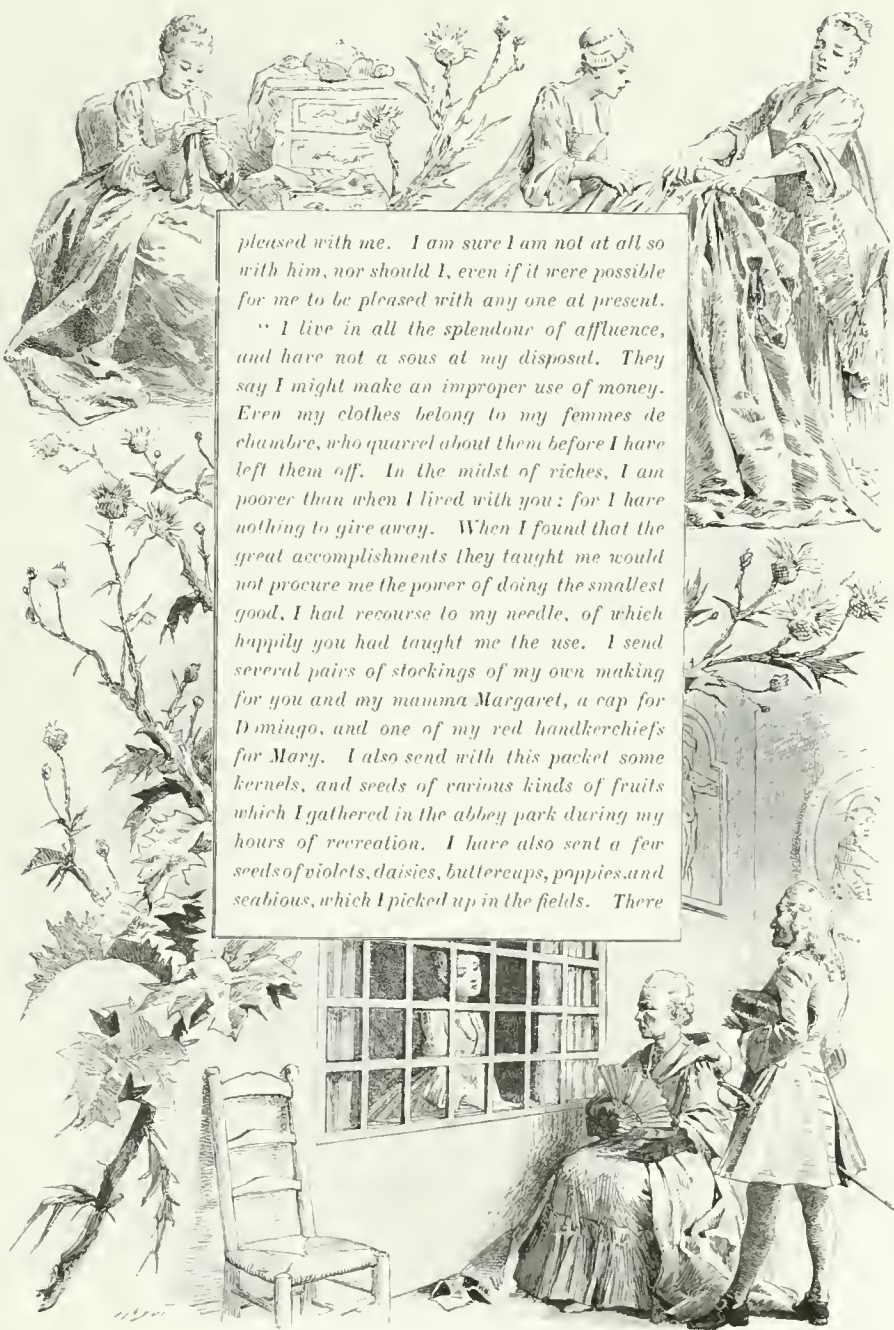 pleased with me. I am sure I am not at all so
with him, nor should I, even if it were possible
for me to be pleased with any one at present.
" I live in all the splendour of affluence,
and have not a sous at my disposal. They
say I might make an improper use of money.
Even my clothes belong to my femmes de
chambre, who quarrel about them before I have
left them off. In the midst of riches, I am
poorer than when I lived with you; for I have
nothing to give away. When I found that the
great accomplishments they taught me would
not procure me the power of doing the smallest
good, I had recourse to my needle, of which
happily you had taught me the use. I send
several pairs of stockings of my own making
for you and my mamma Margaret, a cap for
Domingo, and one of my red handkerchiefs
for Mary. I also send with this packet some
kernels, and seeds of various kinds of fruits
which I gathered in the abbey park during my
hours of recreation. I have also sent a few
seeds of violets, daisies, buttercups, poppies and
scabious, which I picked up in the fields. There